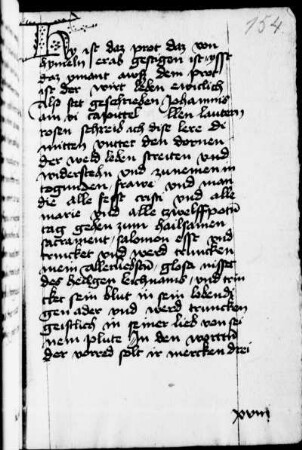 154
Dz ist daz prot daz von
hymeln
daz ymant auß dem prot
ist der wirt leben ewiclich
Also stet geschrieben Johannis
am vi capittel allen lautern
rosen schreib ich dise lere di
mitten unter den dornen
der weld leben streiten und
widersteen und zunemen in
togunden frawe und man
die alle fest cristi und alle
marie und alle zwelffpoten
tag gehen zum hailsamen
sacrament salomon esst und
trincket und werd truncken
mein allerliebsten glosa nisset
des heiligen leichnams und trin
cket sein blut in sein lebendi
gen ader und werd truncken
geistlich in seiner lieb von sei
nem plute In den wortten
der vorred solt ir mercken drei
xviii